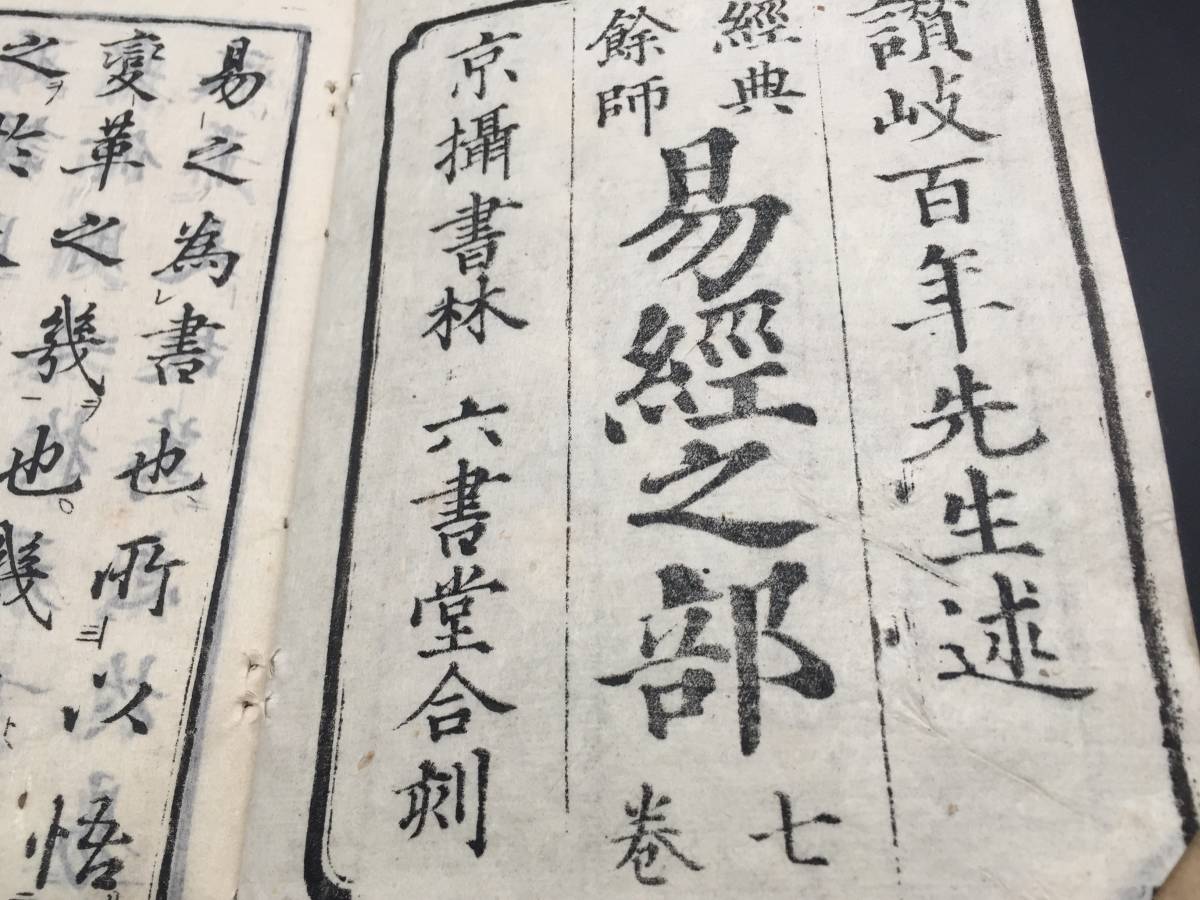 讃岐百年先生述
經典
餘師
易經之部
七
卷
京攝書林 六書堂合刻
易之為書也所以悟
變革之幾也幾
之ヲ於